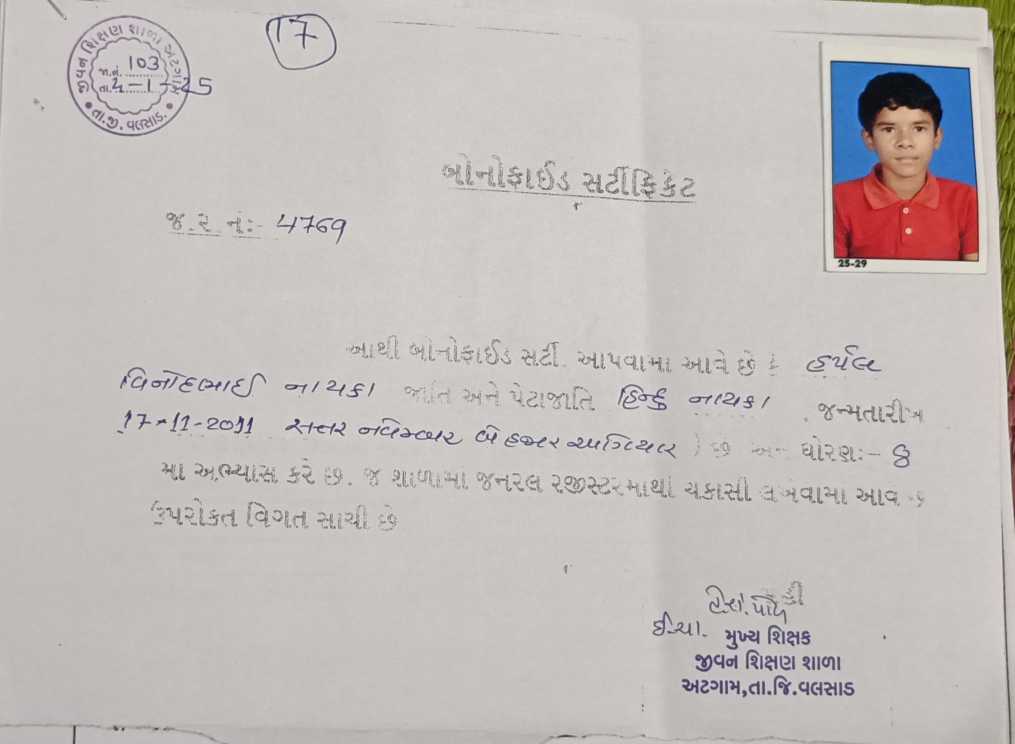 જીવન શિક્ષણ શાળા અટગામ
જા.નં. 103
તા. 4-1-25
તા.જી. વલસાડ.
17
25-29
બોનોફાઈડ સર્ટીફિકેટ
જ.ર.નં:- 4769
આથી બોનોફાઈડ સર્ટી. આપવામા આવે છે કે હર્પલ
વિનોદભાઈ નાયકા જાતિ અને પેટાજાતિ હિન્દુ નાયકા . જન્મતારીખ
17-11-2011 સત્તર નવેમ્બર બે હજાર અગિયાર ) છે અને ધોરણ:- 8
મા અભ્યાસ કરે છે. જે શાળામાં જનરલ રજીસ્ટરમાથી ચકાસી લખવામા આવે છે
ઉપરોકત વિગત સાચી છે
ઈ.ચા. મુખ્ય શિક્ષક
જીવન શિક્ષણ શાળા
અટગામ,તા.જિ.વલસાડ